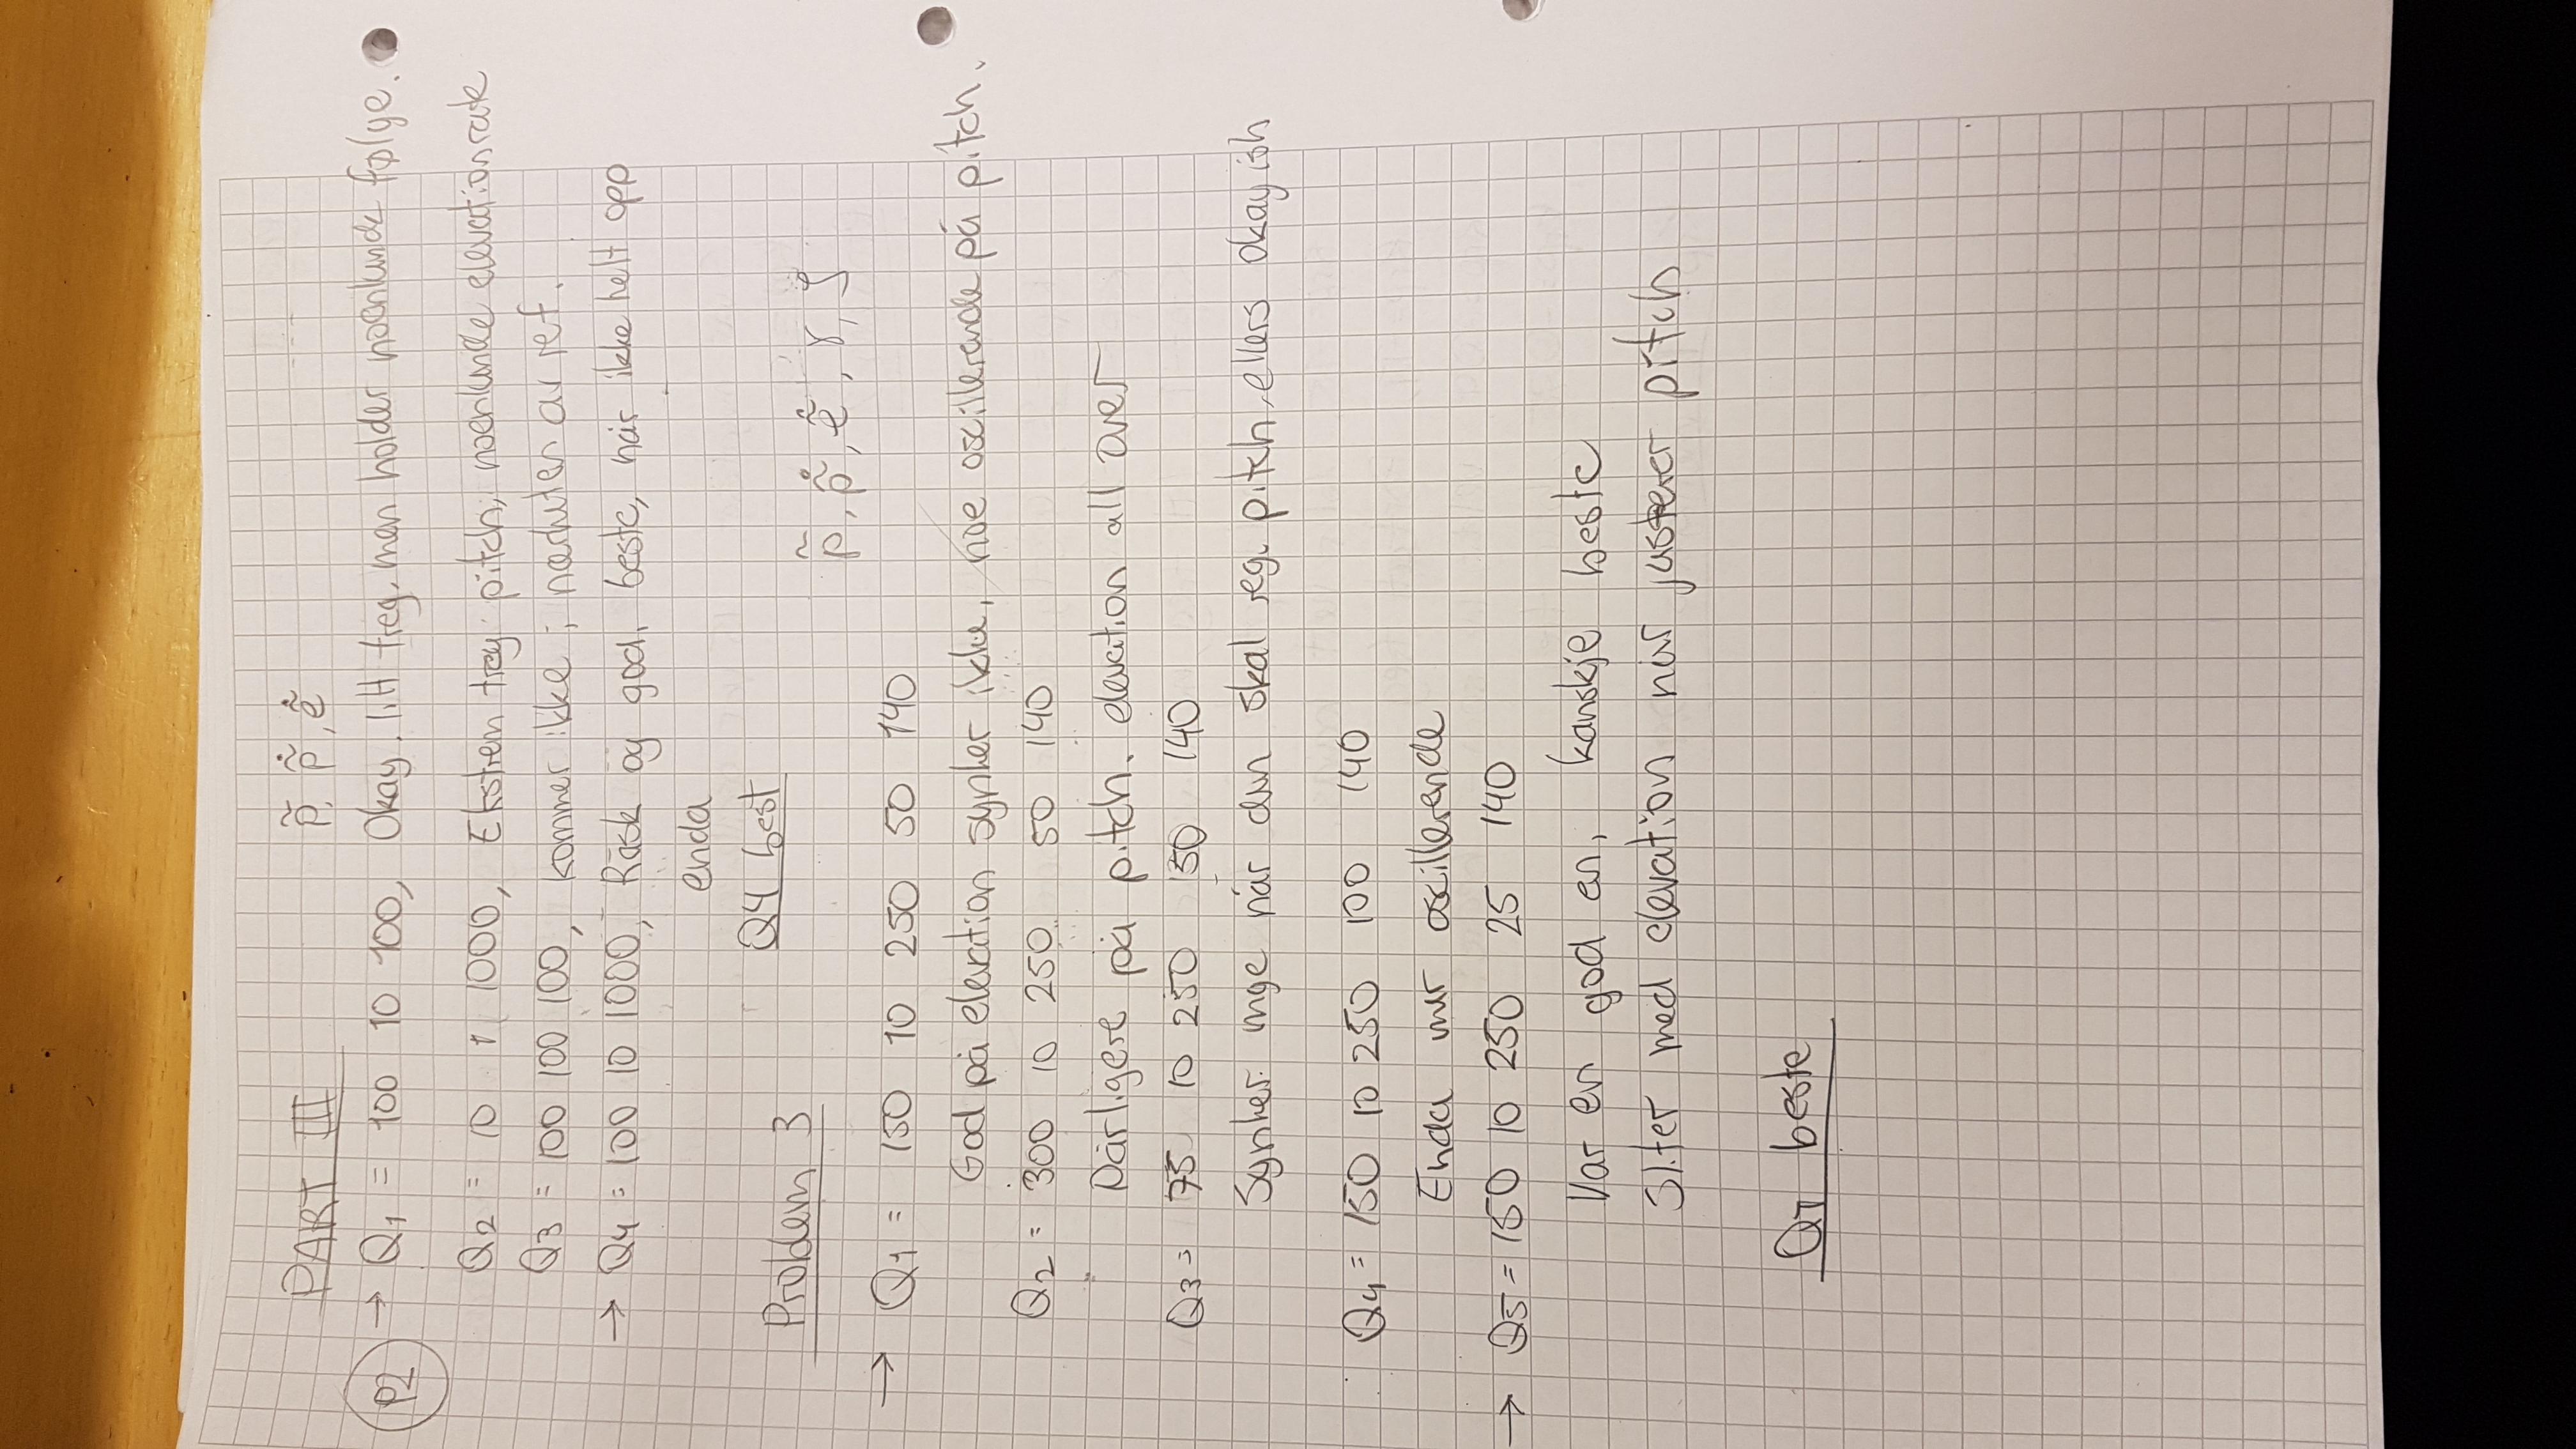 PART III p̃, p̃̇, ẽ̇
P2 → Q1 = 100 10 100, Okay, litt treg, men holder noenlunde følge.
Q2 = 10 1 1000, Ekstrem treg pitch, noenlunde elevationrate
Q3 = 100 100 100, kommer ikke i nærheten av ref.
→ Q4 = 100 10 1000, Rask og god, beste, når ikke helt opp
enda
Q4 best
Problem 3
p̃, p̃̇, ẽ̇, γ, ζ
→ Q1 = 150 10 250 50 140
God på elevation synker ikke, noe oscillerende på pitch.
Q2 = 300 10 250 50 140
Dårligere på pitch. elevation all over
Q3 = 75 10 250 50 140
Synker mye når den skal reg. pitch, ellers okay ish
Q4 = 150 10 250 100 140
Enda mer oscillerende
→ Q5 = 150 10 250 25 140
Var en god en, kanskje beste
Sliter med elevation når justerer pitch
Q1 beste